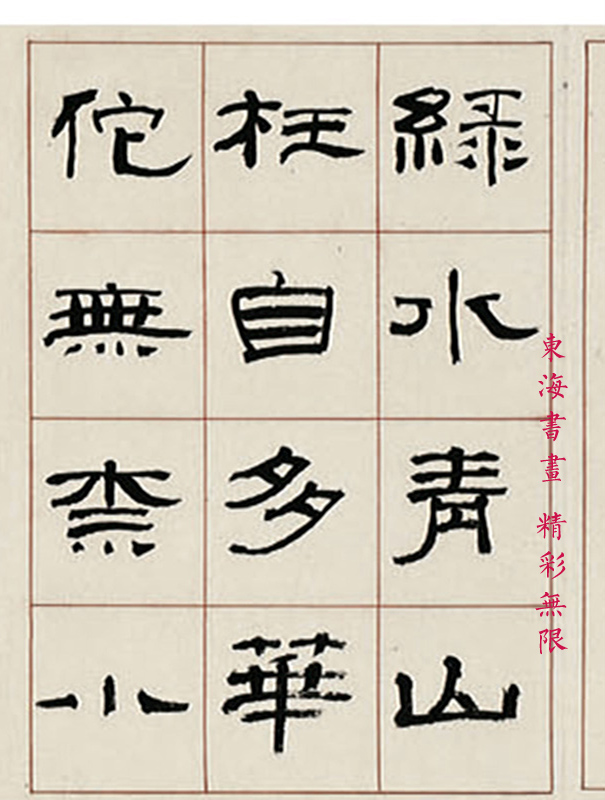 綠水青山
枉自多華
佗無柰小
東海書畫 精彩無限